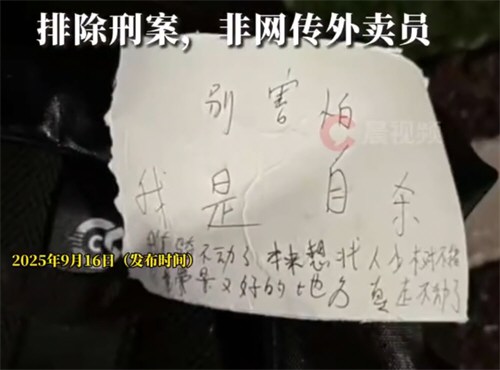 排除刑案，非网传外卖员
别害怕
晨视频
我是自杀
不动了 本来想找人少
2025年9月16日（发布时间）
又好的地方 真走不动了